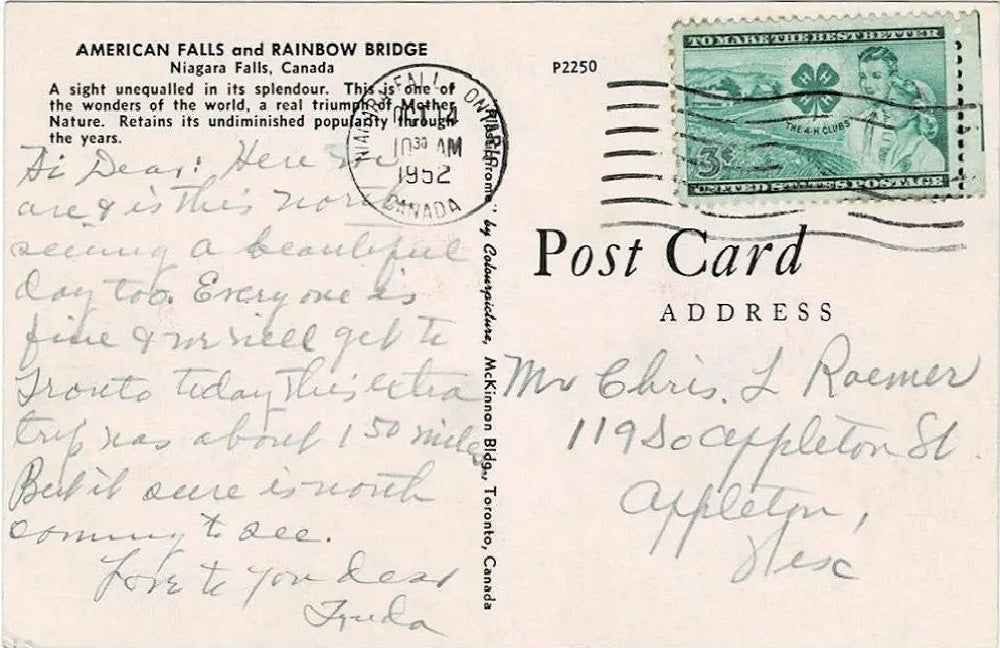 AMERICAN FALLS and RAINBOW BRIDGE
Niagara Falls, Canada
A sight unequalled in its splendour. This is one of
the wonders of the world, a real triumph of Mother
Nature. Retains its undiminished popularity through
the years.
Hi Dear: Here we
are & is this worth
seeing a beautiful
day too. Every one is
fine & we will get to
Tronto today This extra
trip was about 150 miles
But it sure is worth
coming to see.
Love to you Dear
Freda
NIAGARA FALLS ONTARIO
OCT 14
10 30 AM
1952
CANADA
by Colourpicture, McKinnon Bldg., Toronto, Canada
P2250
TO MAKE THE BEST BETTER
H H H H
THE 4-H CLUBS
3¢
UNITED STATES POSTAGE
Post Card
ADDRESS
Mr Chris. L Roemer
119 So Appleton St.
Appleton,
Wisc